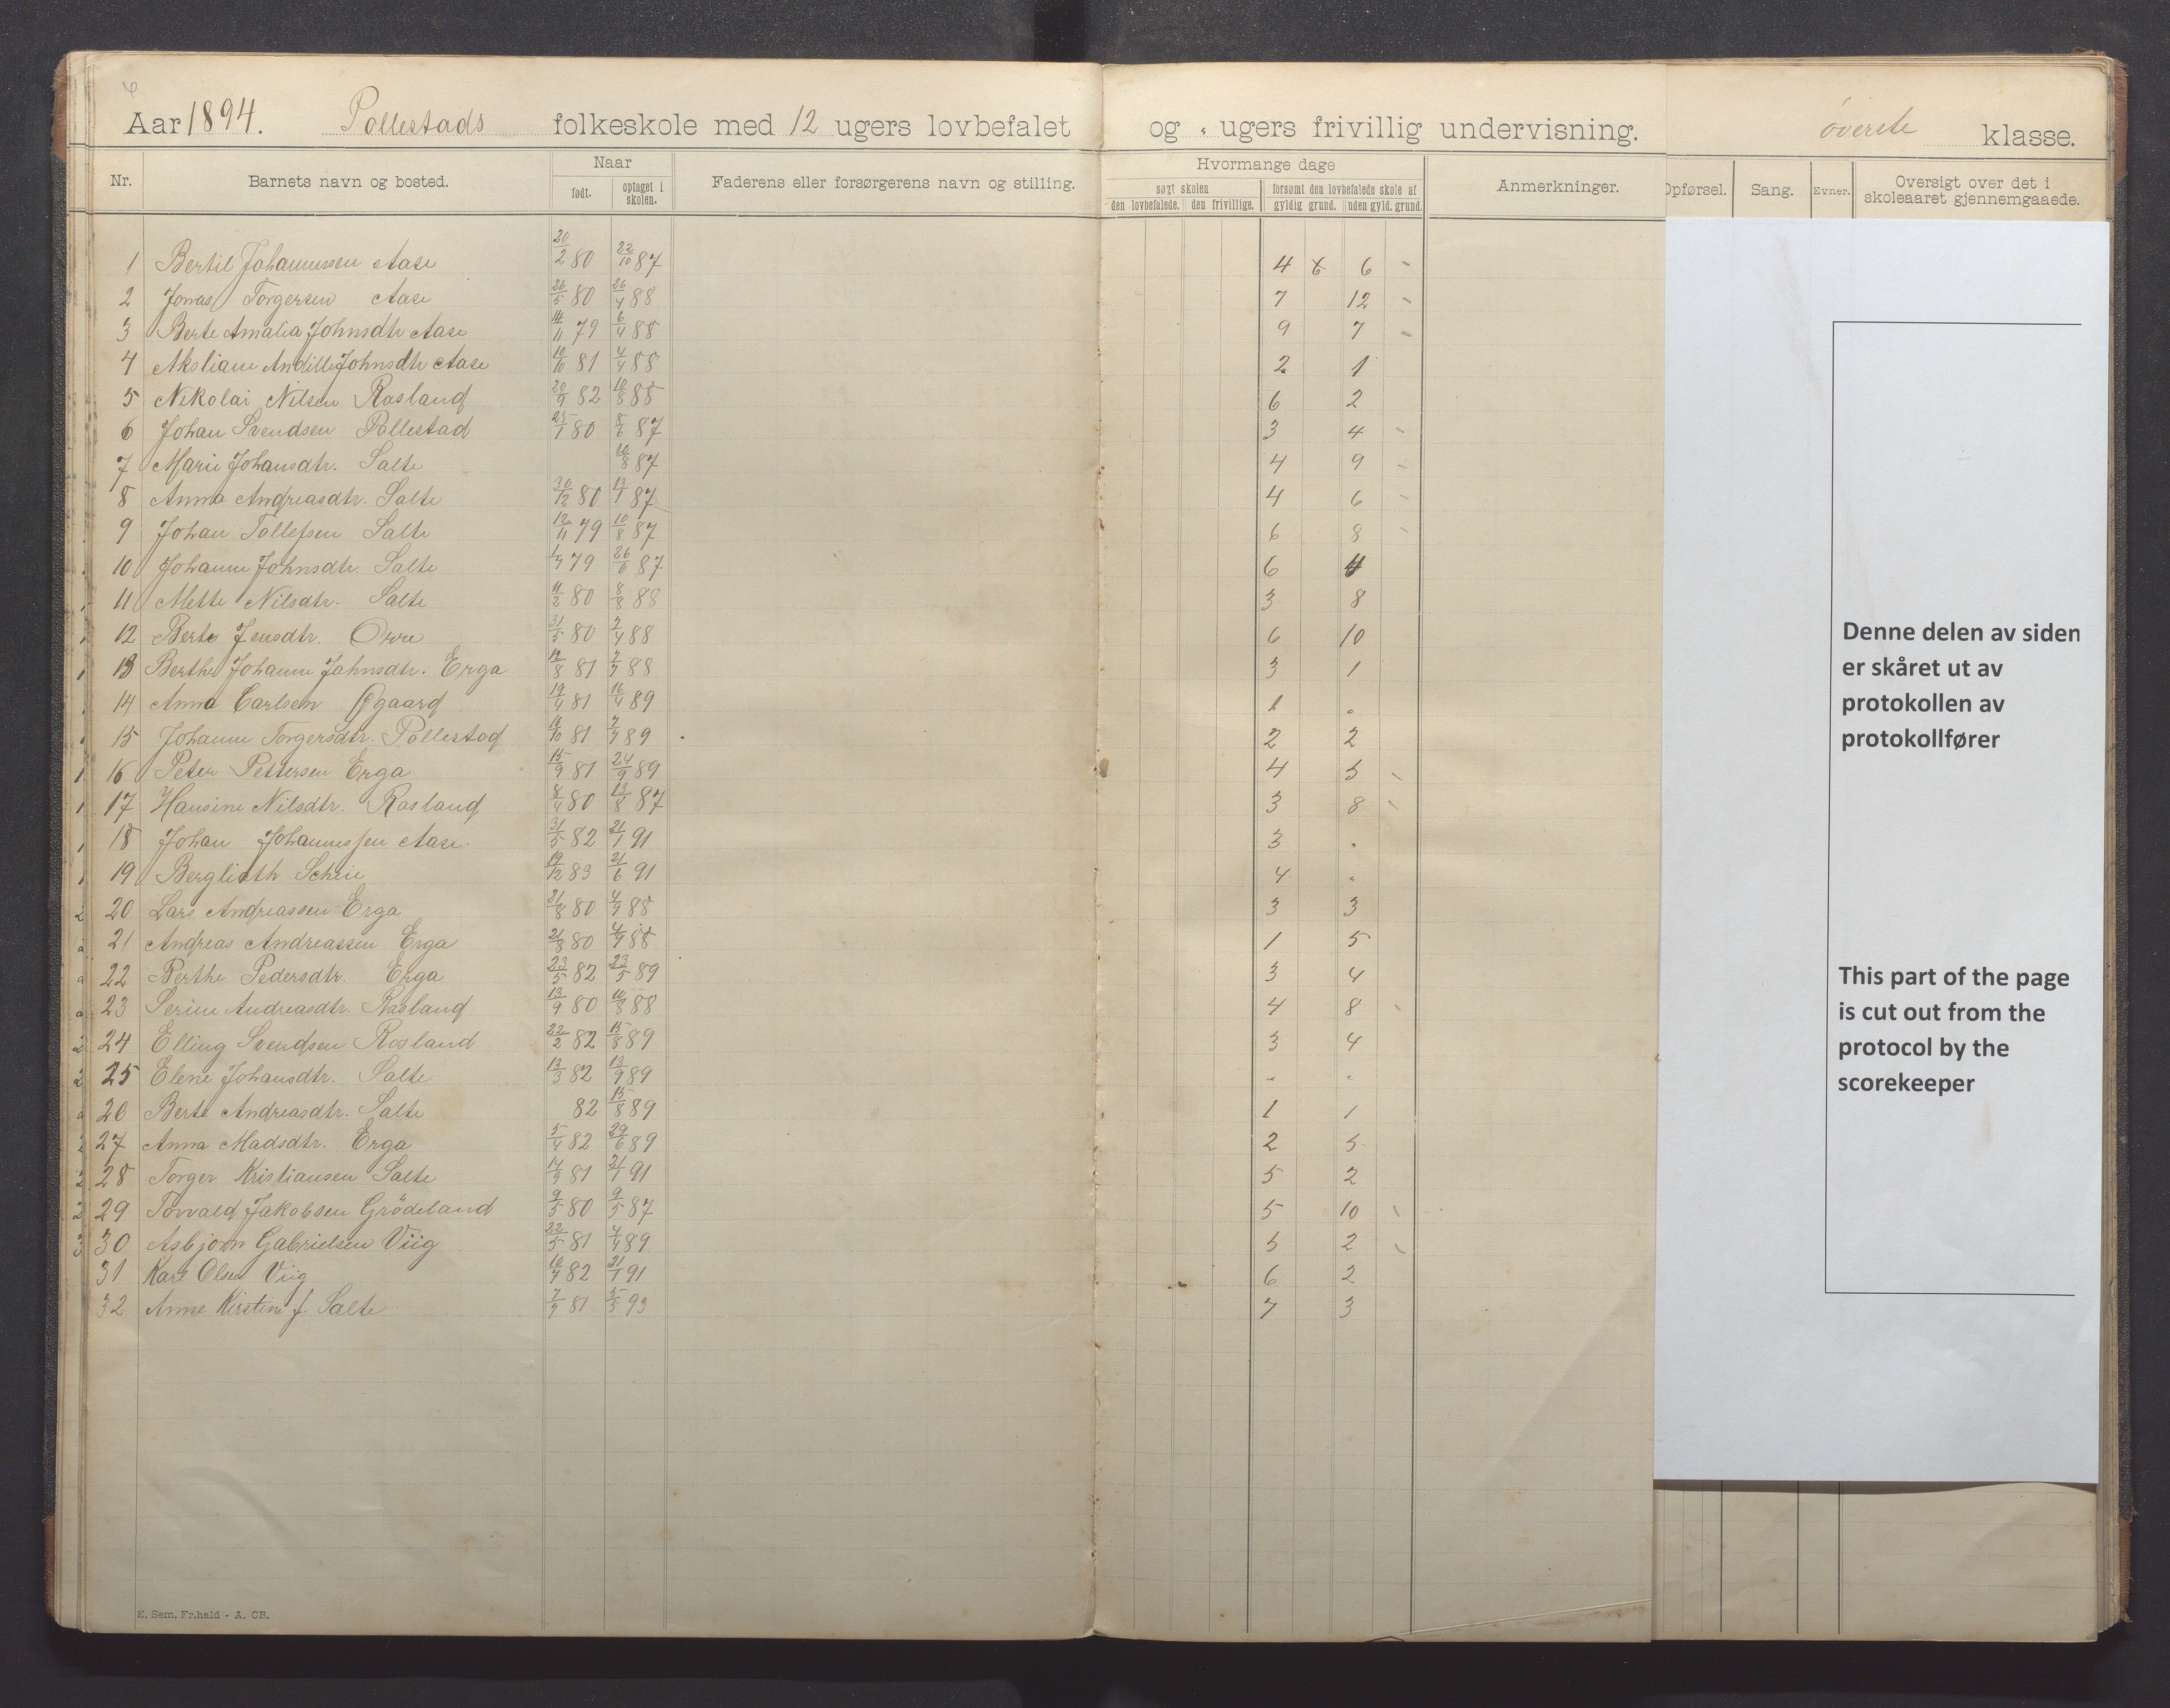 Aar 1894. Pollestads folkeskole med 12 ugers lovbefalet og " ugers frivillig undervisning. överste klasse.
Nr. Barnets navn og bosted. Naar Faderens eller forsørgerens navn og stilling. Hvormange dage Anmerkninger. Opførsel. Sang. Evner. Oversigt over det i skoleaaret gjennemgaaede.
født. optaget i skolen. søgt skolen forsømt den lovbefalede skole af
den lovbefalede. den frivillige. gyldig grund. uden gyld. grund.
1 Bertil Johannessen Aase 20/2 80 22/10 87 4 6
2 Jonas Torgersen Aase 26/5 80 26/4 88 7 12
3 Berte Amalia Johnsdtr Aase 14/11 79 6/4 88 9 7
4 Johnsdtr Aase 10/10 81 4/4 88 2 1
5 Nikolai Nilsen Rosland 20/9 82 10/8 88 6 2
6 Johan Svendsen Pollestad 25/1 80 8/6 87 3 4
7 Marie Johansdtr. Salte 10/8 87 4 9
8 Anna Andreasdtr. Salte 30/12 80 13/1 87 4 6
9 Johan Tollefsen Salte 12/11 79 10/8 87 6 8
10 Johanne Johnsdtr. Salte 79 26/6 87 6 4
11 Mette Nilsdtr. Salte 11/2 80 8/8 88 3 8
12 Berte Jensdtr. Orre 31/5 80 88 6 10
13 Berthe Johanne Johnsdtr. Erga 12/8 81 88 3 1
14 Anna Carlsen Øgaard 19/4 81 16/4 89 1 "
15 Johanne Torgersdtr. Pollestad 16/10 81 89 2 2
16 Peter Pettersen Erga 15/9 81 24/9 89 4 5
17 Hansine Nilsdtr. Rosland 8/4 80 13/8 87 3 8
18 Johan Johannessen Aase 31/5 82 21/1 91 3 "
19 Berglioth Scheie 19/12 83 21/6 91 4 "
20 Lars Andreassen Erga 21/8 80 4/9 88 3 3
21 Andreas Andreassen Erga 21/8 80 4/9 88 1 5
22 Berthe Pedersdtr. Erga 23/5 82 23/5 89 3 4
23 Serine Andreasdtr. Rosland 13/9 80 10/8 88 4 8
24 Elling Svendsen Rosland 22/2 82 15/8 89 3 4
25 Elene Johansdtr. Salte 13/3 82 13/9 89 " "
26 Berte Andreasdtr. Salte 82 15/8 89 1 1
27 Anna Madsdtr. Erga 5/4 82 29/6 89 2 5
28 Torger Kristiansen Salte 14/9 81 21/1 91 5 2
29 Torvald Jakobsen Grödeland 9/5 80 9/5 87 5 10
30 Asbjorn Gabrielsen Viig 22/5 81 4/4 89 5 2
31 Karl Olsen Viig 10/7 82 21/1 91 6 2
32 Anne Kirstine J. Salte 81 5/5 93 7 3
Denne delen av siden
er skåret ut av
protokollen av
protokollfører
This part of the page
is cut out from the
protocol by the
scorekeeper
E. Sem, Fr.hald - A. CB.